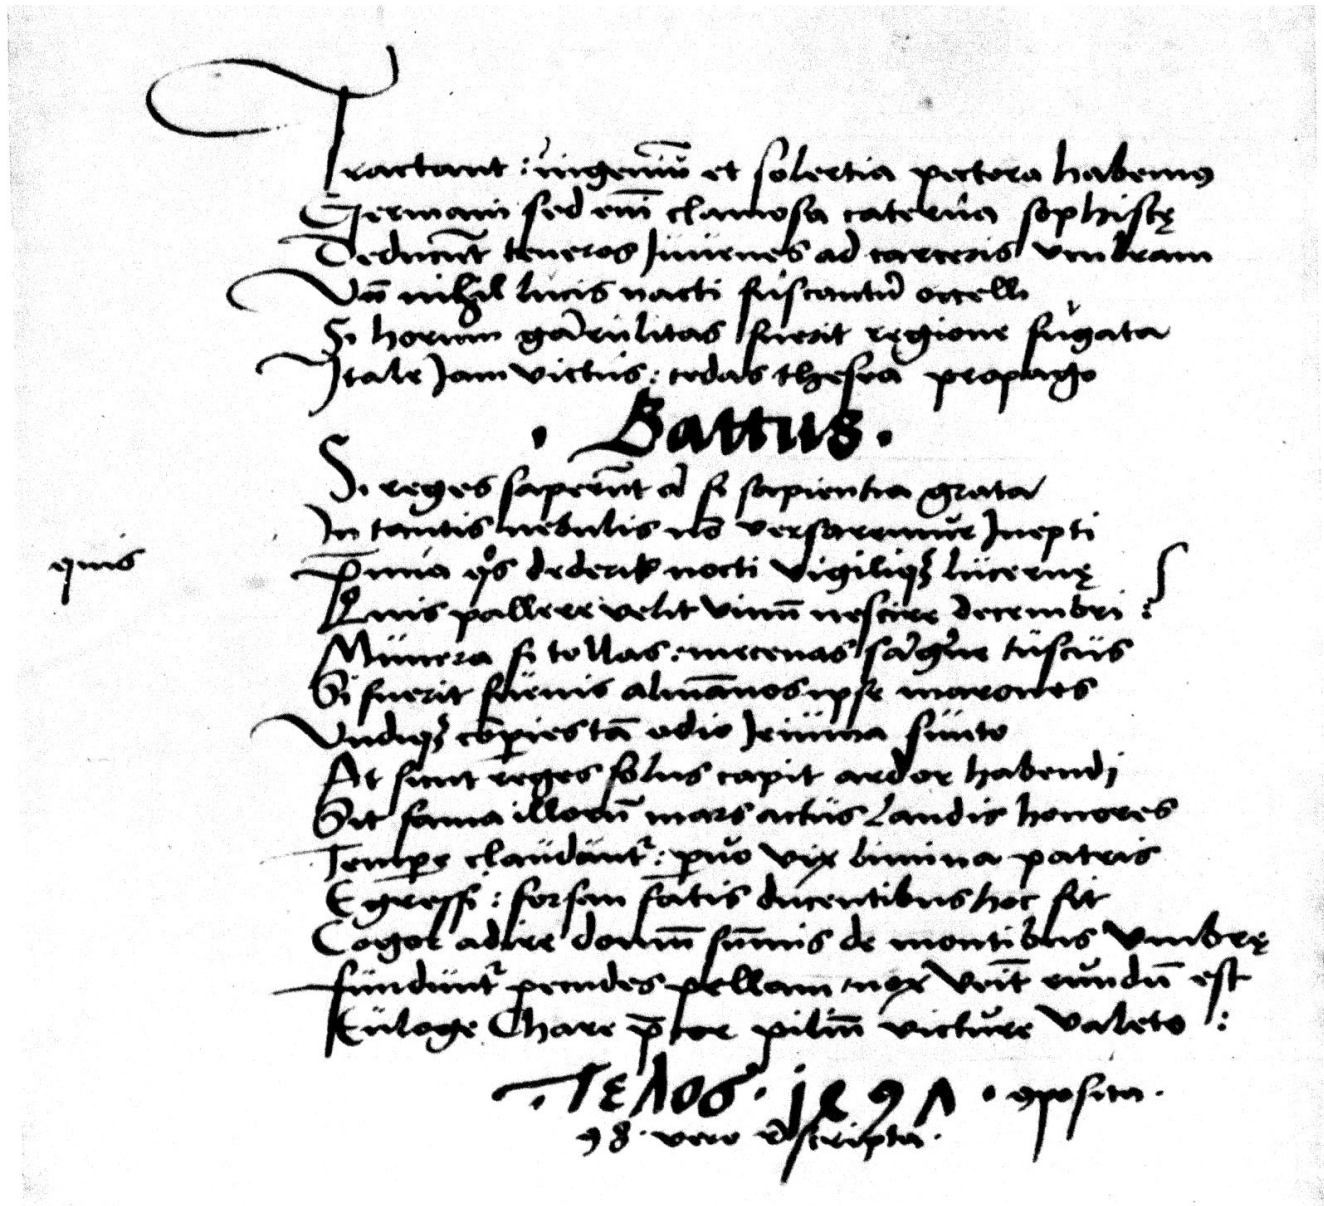 Tractant : ingeniū et solertia pectora habemꝰ
Germani sed em̄ clamosa caterua sophistę
Deducūt teneros Juuenes ad carceris vmbram
Vn̄ nihil lucis nacti fuscantur ocelli
Si horum garrulitas fuerit regione fugata
Itale Jam victus : cedas thesea propago
. Battus .
Si reges saperēt si sapientia grata
In tantis nebulis nō versaremur Inepti
quis
p̄mia q̊s dederit nocti vigiliqꝫ lucernę
Quis pallere velit vinū nescire decembri :
Munera si tollas : mecenas tuscus
Si fuerit almānos ipse marones
Vndiqꝫ cōperies tā odio Jeiuna sunto
At sunt reges solus capit ardor habendi
Sit fama illorū mars actus Laudis honores
Tempe claudunt᷑ : puo vix limina patris
Egressi : forsan fātis ducentibus hoc fit
Cogor adire domū sūmis de montibus vmbrę
fundunt᷑ pecudes pellam nox vēit eundū est
Euloge Chare p̄tor victure valeto :
. Τελος . 1497 . ꝯposita .
98 . vero rescripta .